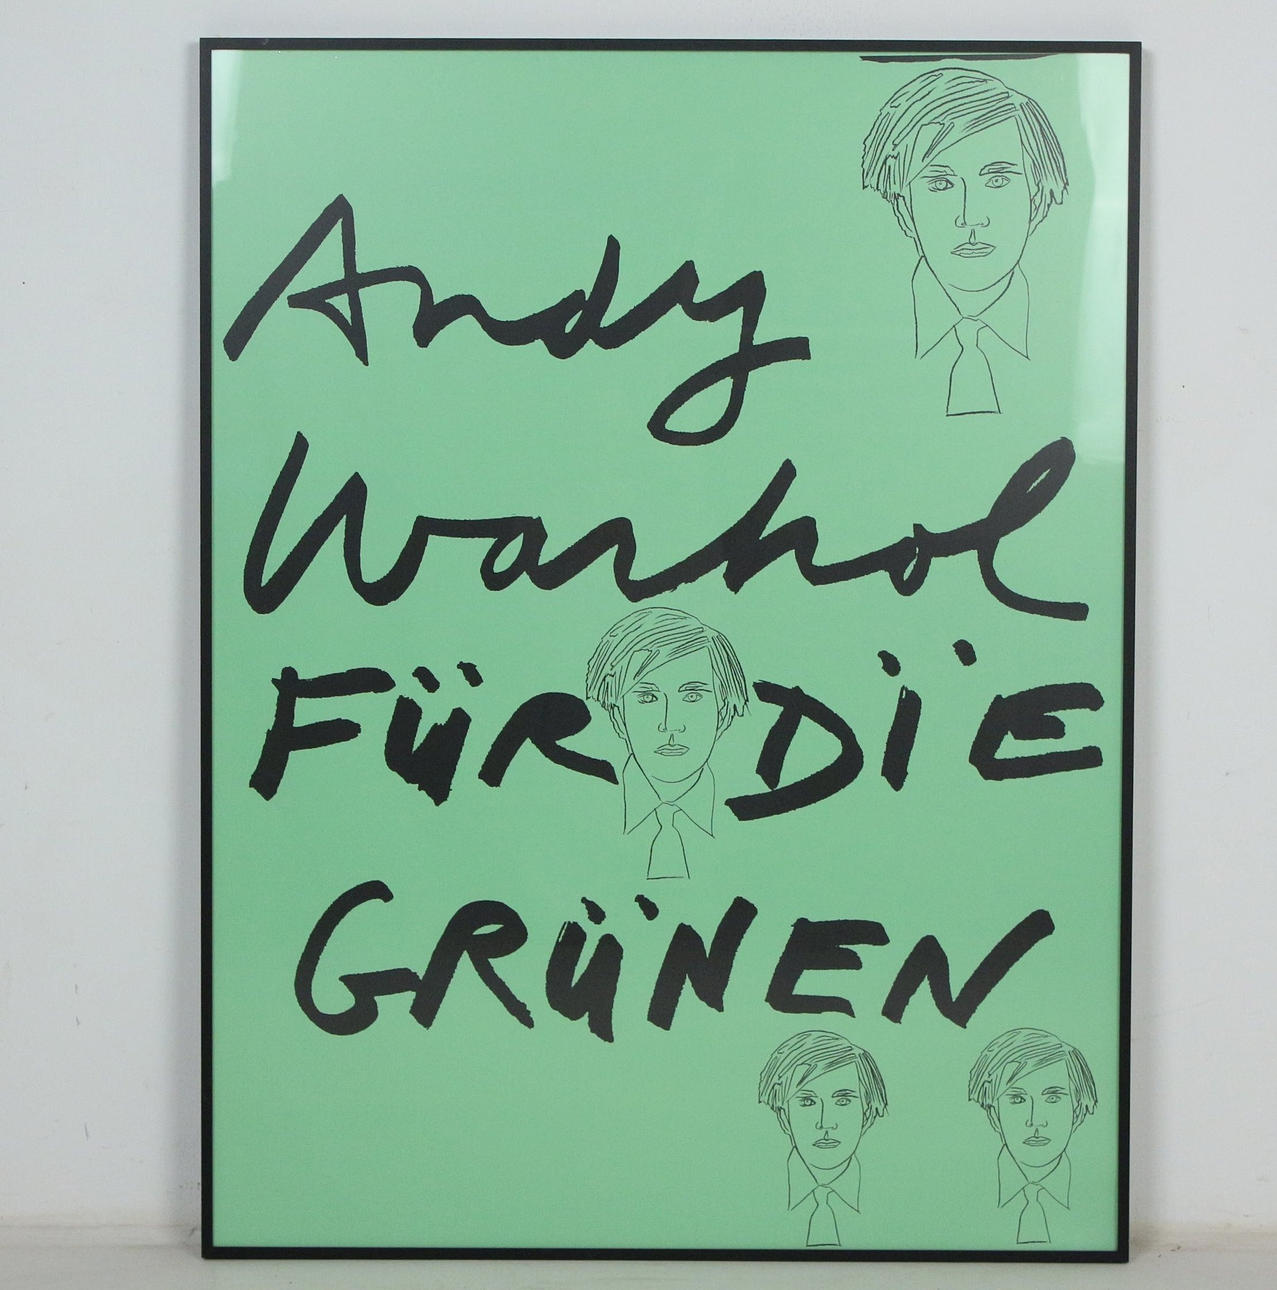 Andy
Warhol
FÜR DIE
GRÜNEN